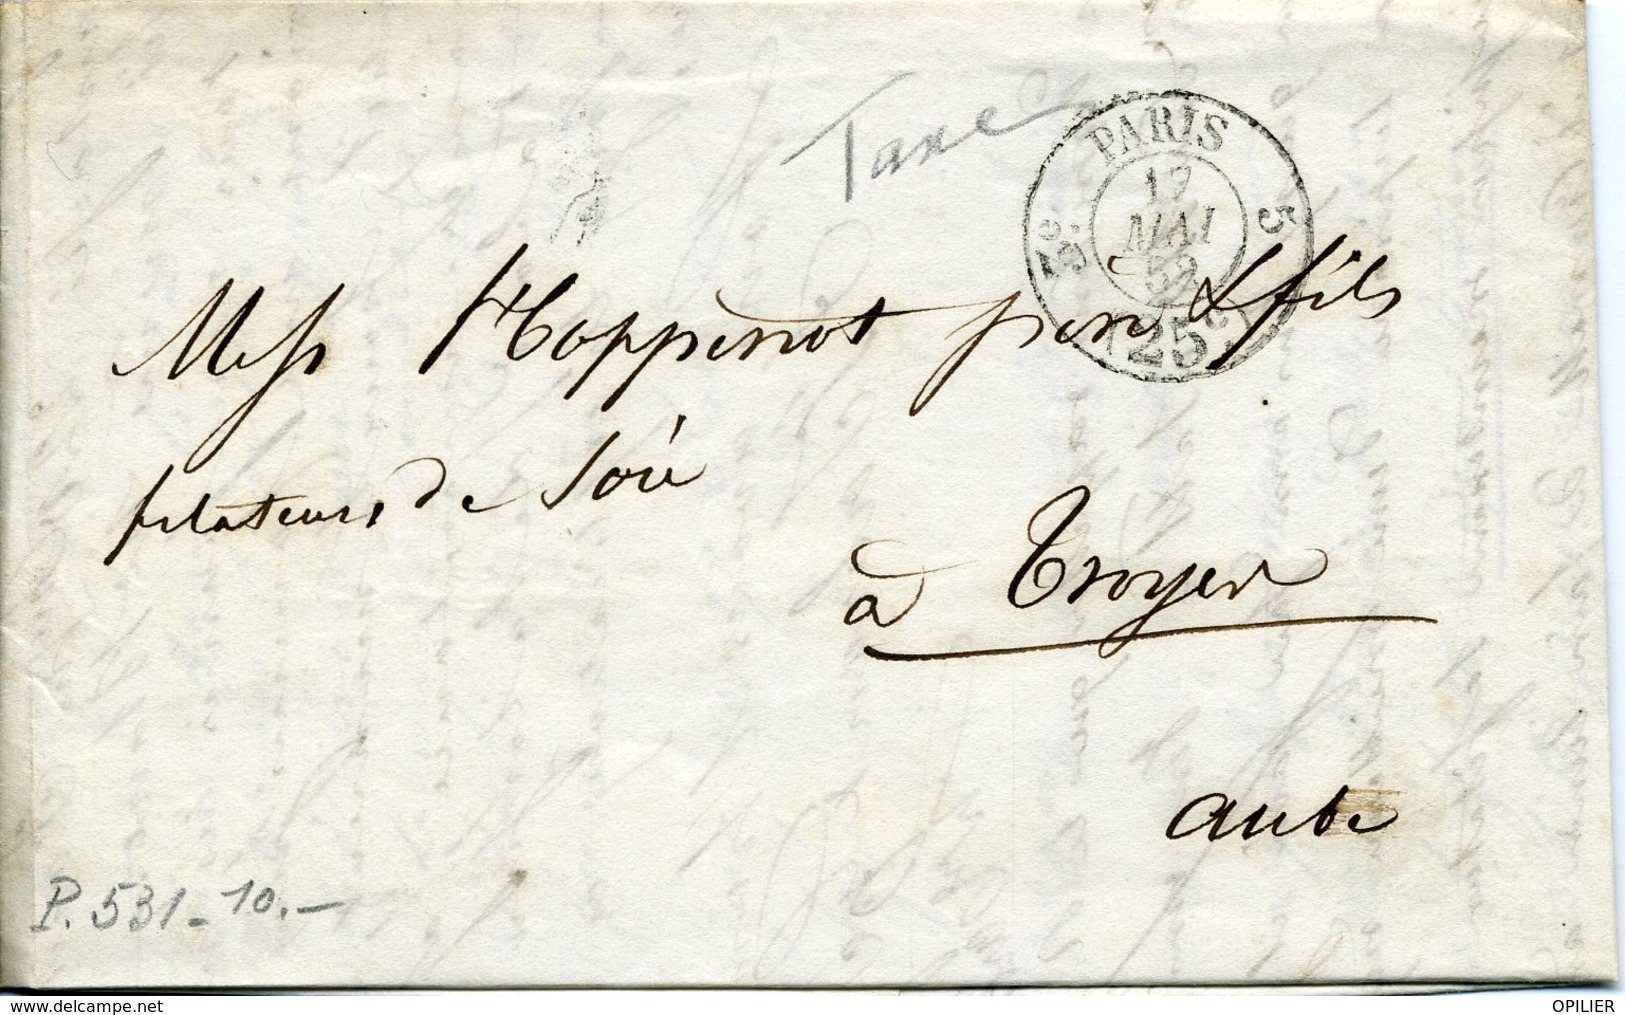 Taxe
PARIS
17
MAI
52
25c
5
Mess Hoppenot père & fils
filateurs de Soie
à Troyes
aube
P. 531 - 10.-
www.delcampe.net
OPILIER